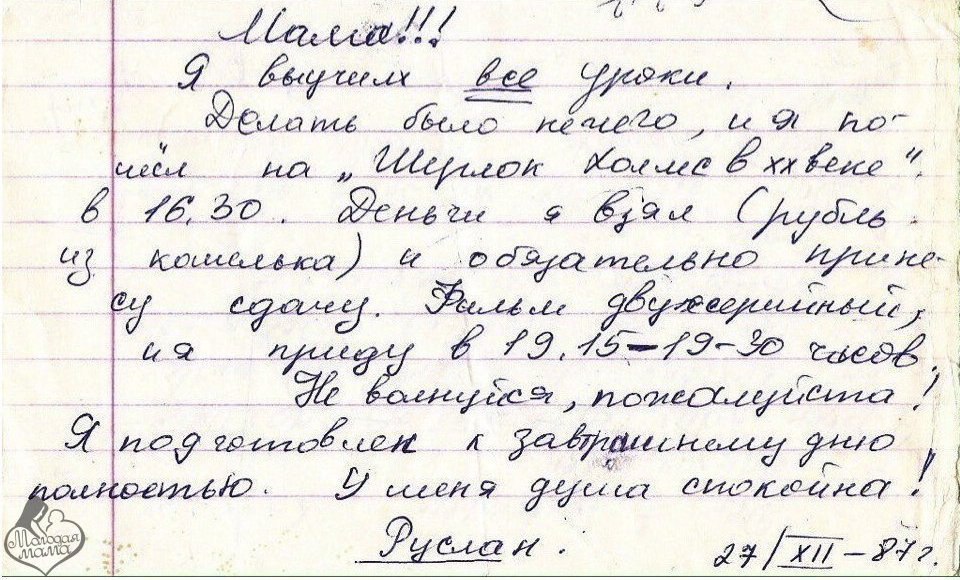 Мама!!!
Я выучил все уроки.
Делать было нечего, и я по-
шёл на „Шерлок Холмс в XX веке".
в 16.30. Деньги я взял (рубль
из кошелька) и обязательно прине-
су сдачу. Фильм двухсерийный,
и я приду в 19.15-19-30 часов.
Не волнуйся, пожалуйста!
Я подготовлен к завтрашнему дню
полностью. У меня душа спокойна!
Руслан.
27/XII-87г.
Молодая
мама